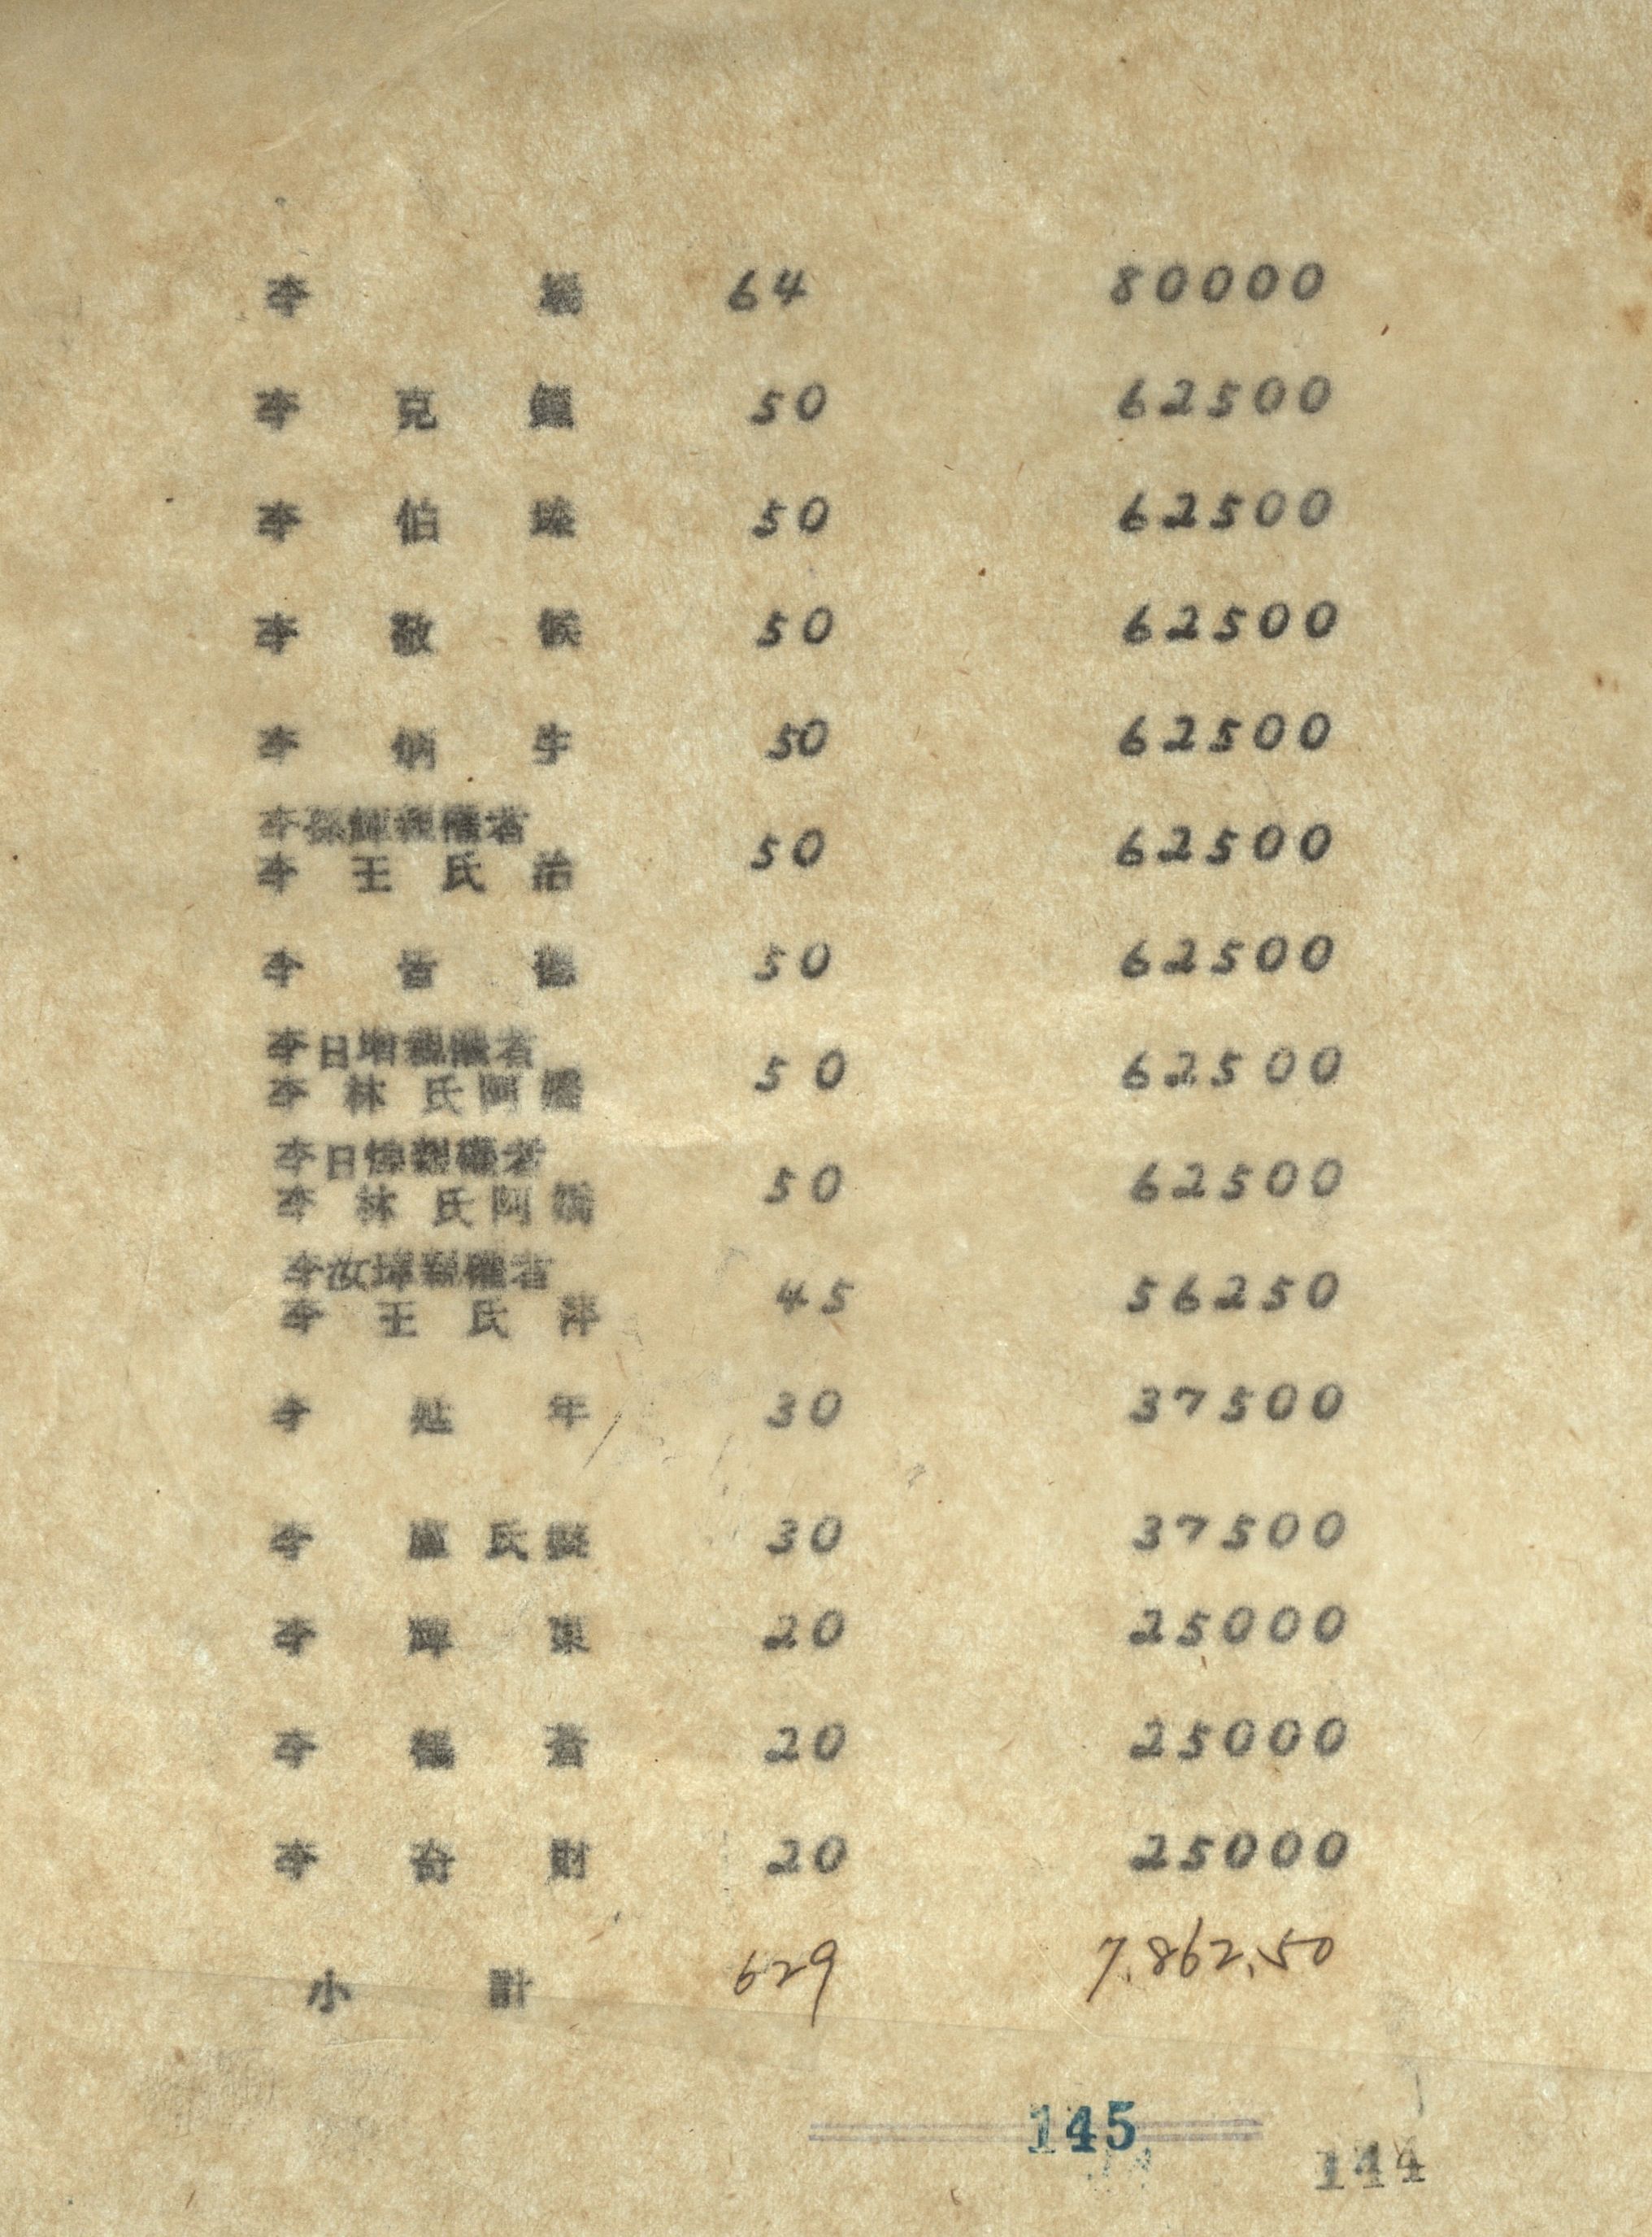 李 64 80000
李 克 50 62500
李 伯 50 62500
李 敬 50 62500
李 炳 生 50 62500
李 輝親權者
李 王 氏 治 50 62500
李 德 50 62500
李日增親權者
李 林 氏 阿 50 62500
李日 親權者
李 林 氏 阿 50 62500
李汝 親權者
李 王 氏 萍 45 56250
李 延 年 30 37500
李 盧 氏 30 37500
李 輝 東 20 25000
李 20 25000
李 奇 財 20 25000
小 計 629 7,862.50
145
144